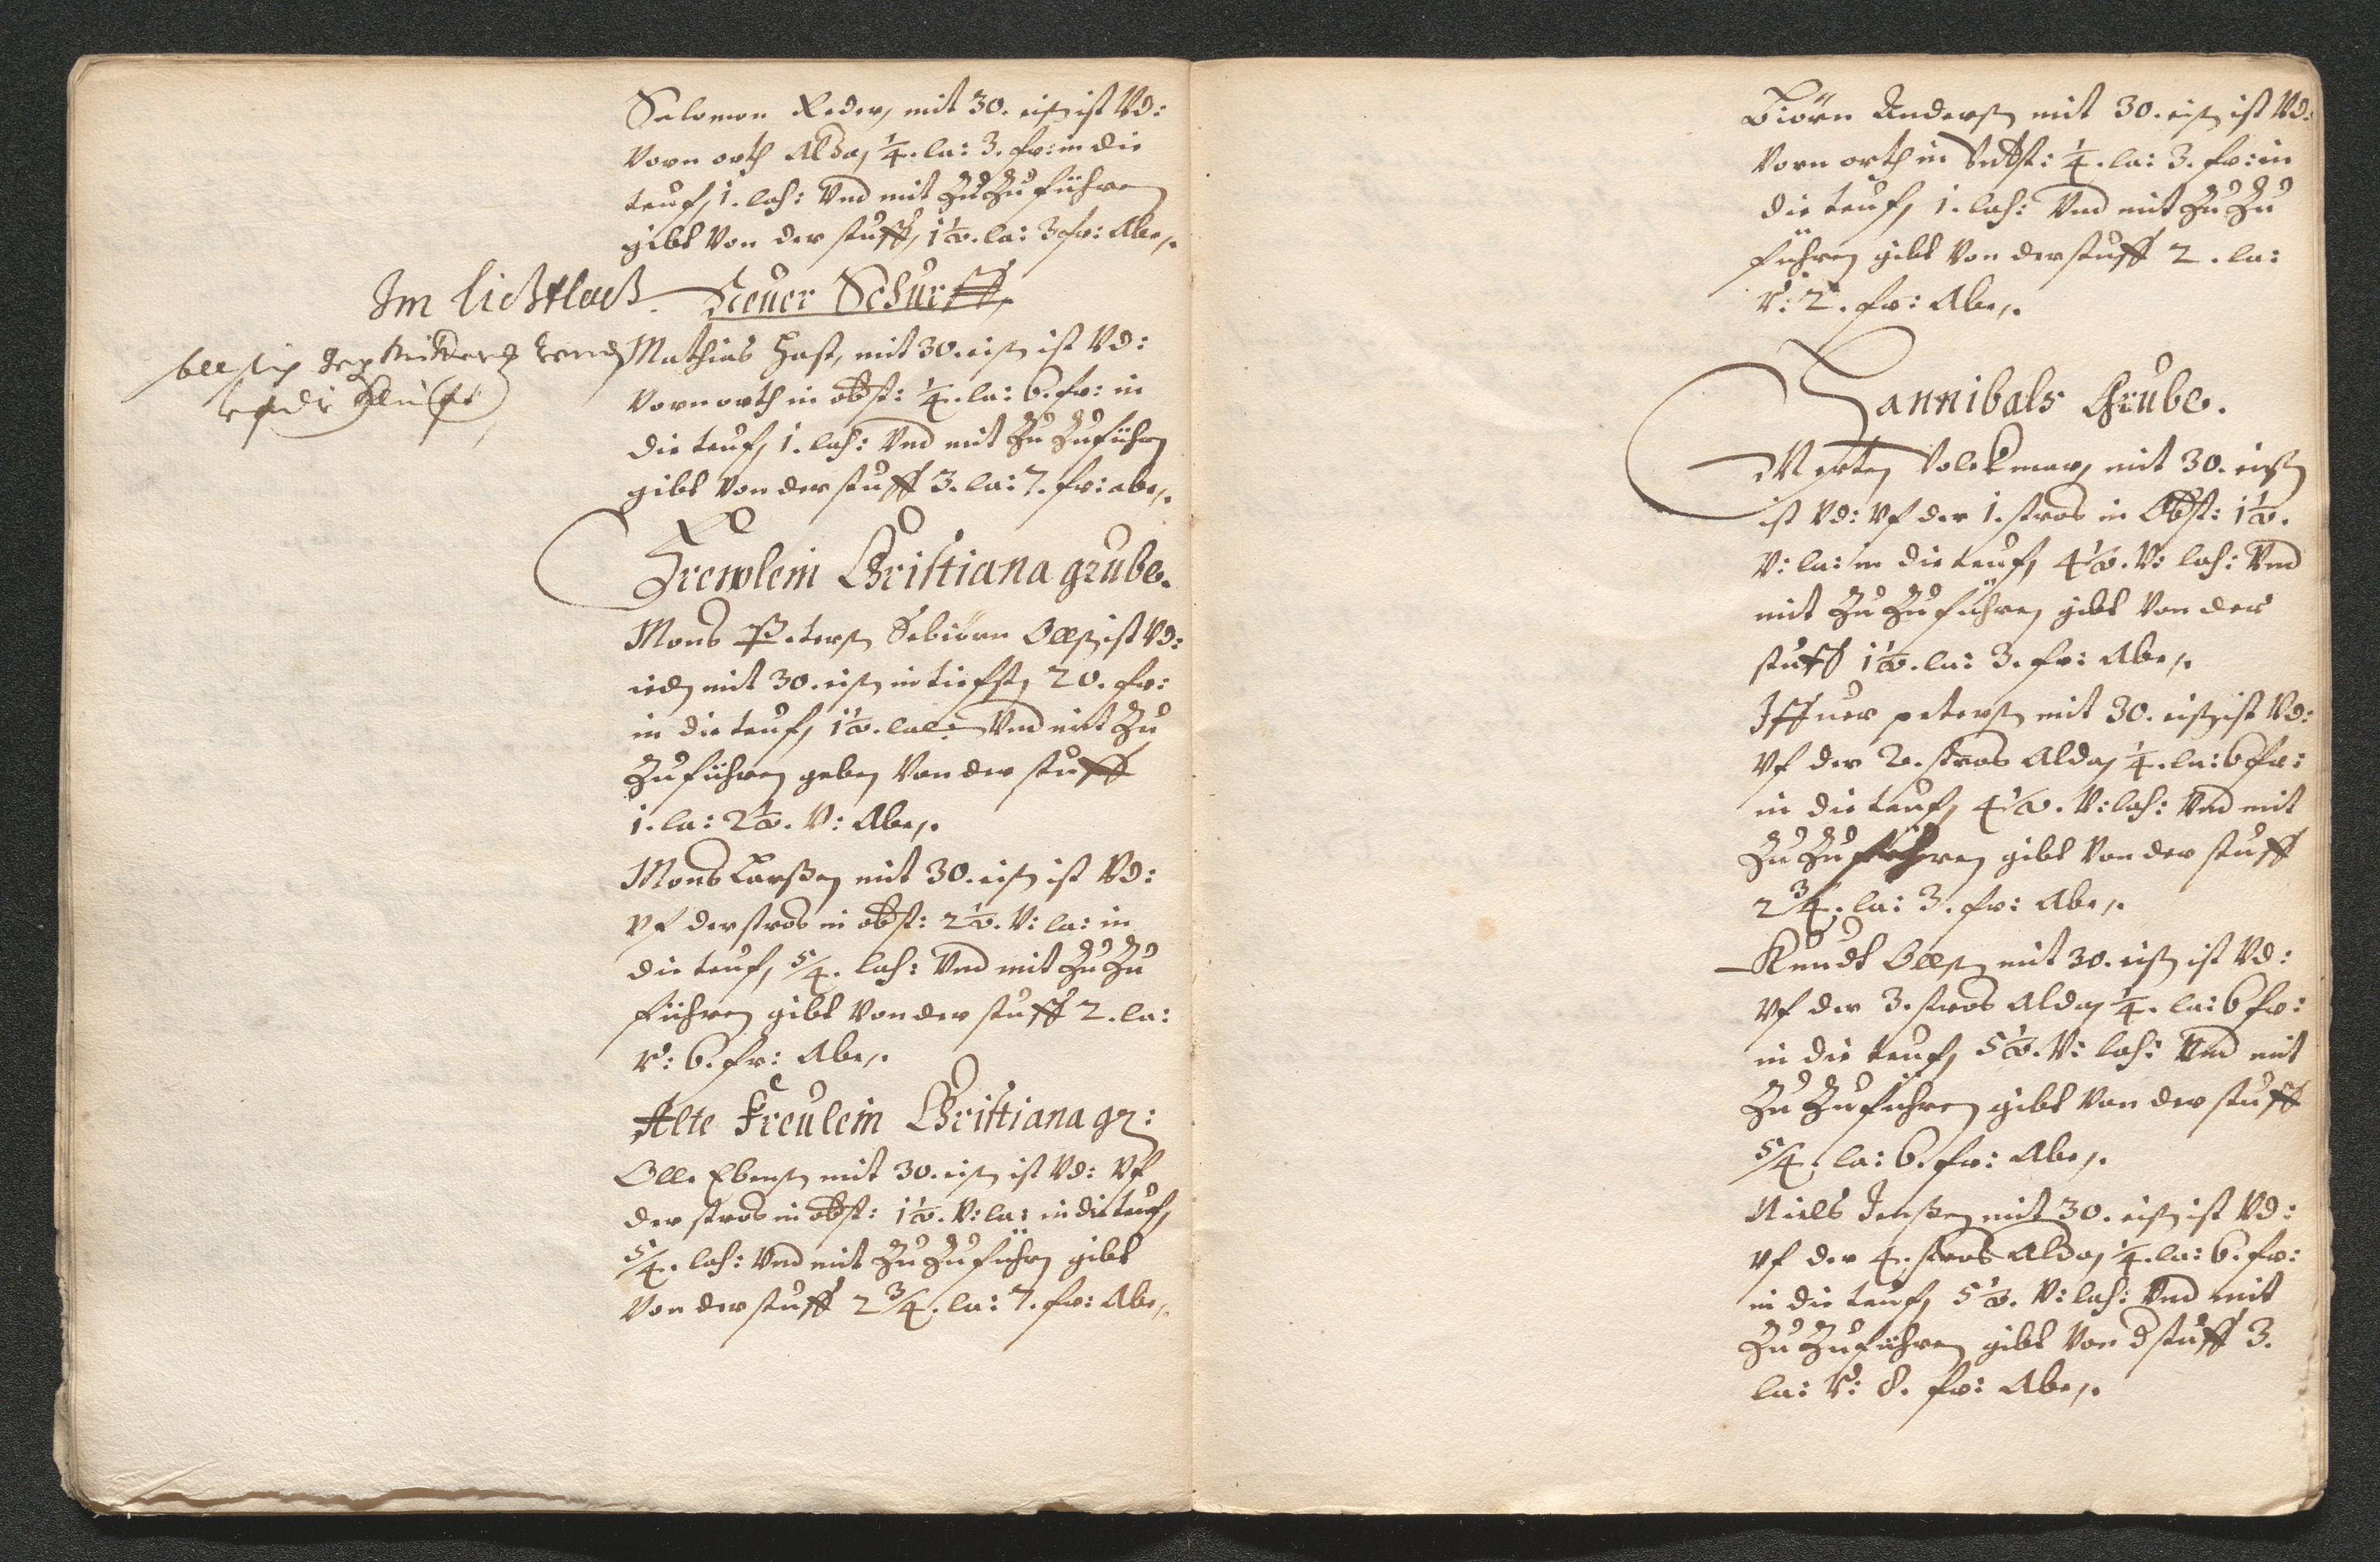 Salomon Reder, mit 30. eisen ist Vd:
Vorn orth Alda, 1/4. la: 3. fr: in die
teuf, 1. lah: Vnd mit Zu Zu führen
gibt Von der stuff, 1 1/2. la: 3 fr: Abe,.
Im lichtlach. Neuer Schurff,
Mathias Hast, mit 30. eisen ist Vd:
Vorn orth in obst: 1/4. la: 6. fr: in
die teuf, 1. lah: Vnd mit Zu Zuführen
gibt Von der stuff 3. la: 7. fr: abe,.
Frewlein Christiana grube.
Mons Petersen Sebiörn Ollsen ist Vd:
ieder mit 30. eisen in tiefsten 20. fr:
in die teuf, 1 1/2. lah: Vnd mit Zu
Zuführen geben Von der stuff
1. la: 2 1/2. V: Abe,.
Mons Larßen mit 30. eisen ist Vd:
Vf der stros in obst: 2 1/2. V: la: in
die teuf, 5/4. lah: Vnd mit Zu Zu
führen gibt Von der stuff 2. la:
V: 6. fr: Abe,.
Alte Freulein Christiana gr:
Olle Ebensen mit 30. eisen ist Vd: Vf
der stros in obst: 1 1/2. V: la: in die teuf,
5/4. lah: Vnd mit Zu Zuführen gibt
Von der stuff 2 3/4. la: 7. fr: Abe,.
Biörn Andersen mit 30. eisen ist Vd:
Vorn orth in obst: 1/4. la: 3. fr: in
die teuf, 1. lah: Vnd mit Zu Zu
führen gibt Von der stuff 2. la:
V: 2. fr: Abe,.
Hannibals Grube.
Merten Volckmar, mit 30. eisen
ist Vd: Vf der 1. stros in Obst: 1 1/2.
V: la: in die teuf, 4 1/2. V: lah: Vnd
mit Zu Zu führen gibt Von der
stuff 1 1/2. la: 3. fr: Abe,.
Iffuer petersen mit 30. eisen ist Vd:
Vf der 2. stros Alda, 1/4. la: 6 fr:
in die teuf, 4 1/2. V: lah: Vnd mit
Zu Zu führen gibt Von der stuff
2 3/4. la: 3. fr: Abe,.
Knudt Ollsen mit 30. eisen ist Vd:
Vf der 3. stros Alda, 1/4. la: 6 fr:
in die teuf, 5 1/2. V: lah: Vnd mit
Zu Zuführen gibt Von der stuff
5/4. la: 6. fr: Abe,.
Niels Jenßen mit 30. eisen ist Vd:
Vf der 4. stros Alda, 1/4. la: 6. fr:
in die teuf, 5 1/2. V: lah: Vnd mit
Zu Zuführen gibt Von d stuff 3.
la: V: 8. fr: Abe,.